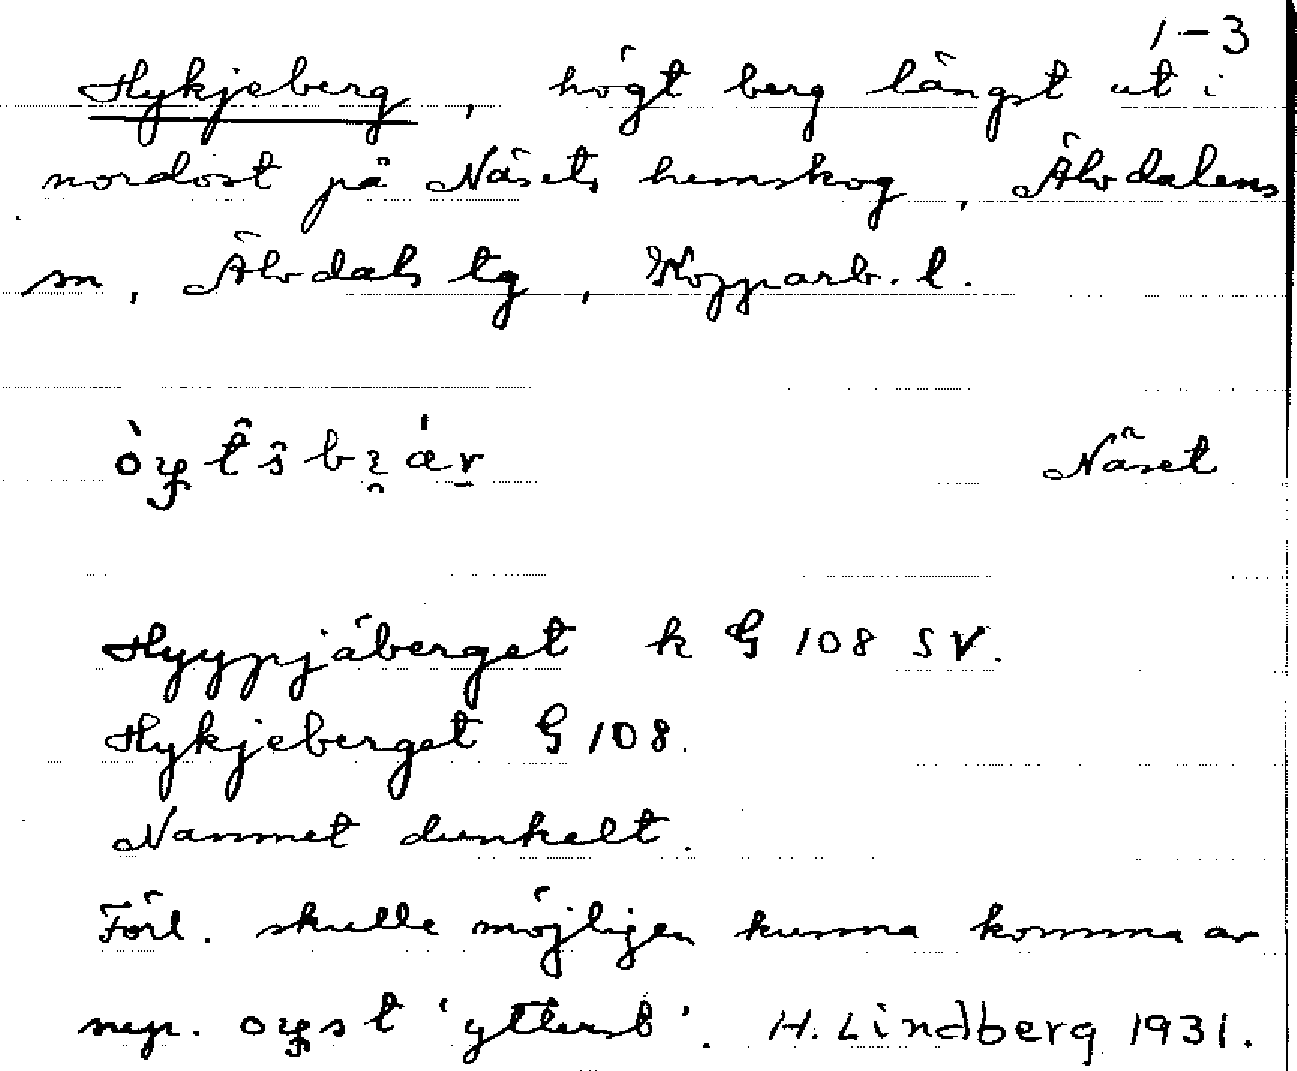 1-3
Hykjeberg, högt berg längst ut i
nordöst på Näsets hemskog, Älvdalens
sn, Älvdals tg, Kopparb. l.
Näset
Hyypjäberget k G 108 SV.
Hykjeberget G 108.
Namnet dunkelt.
Förl. skulle möjligen kunna komma av
'ytterst'. H. Lindberg 1931.